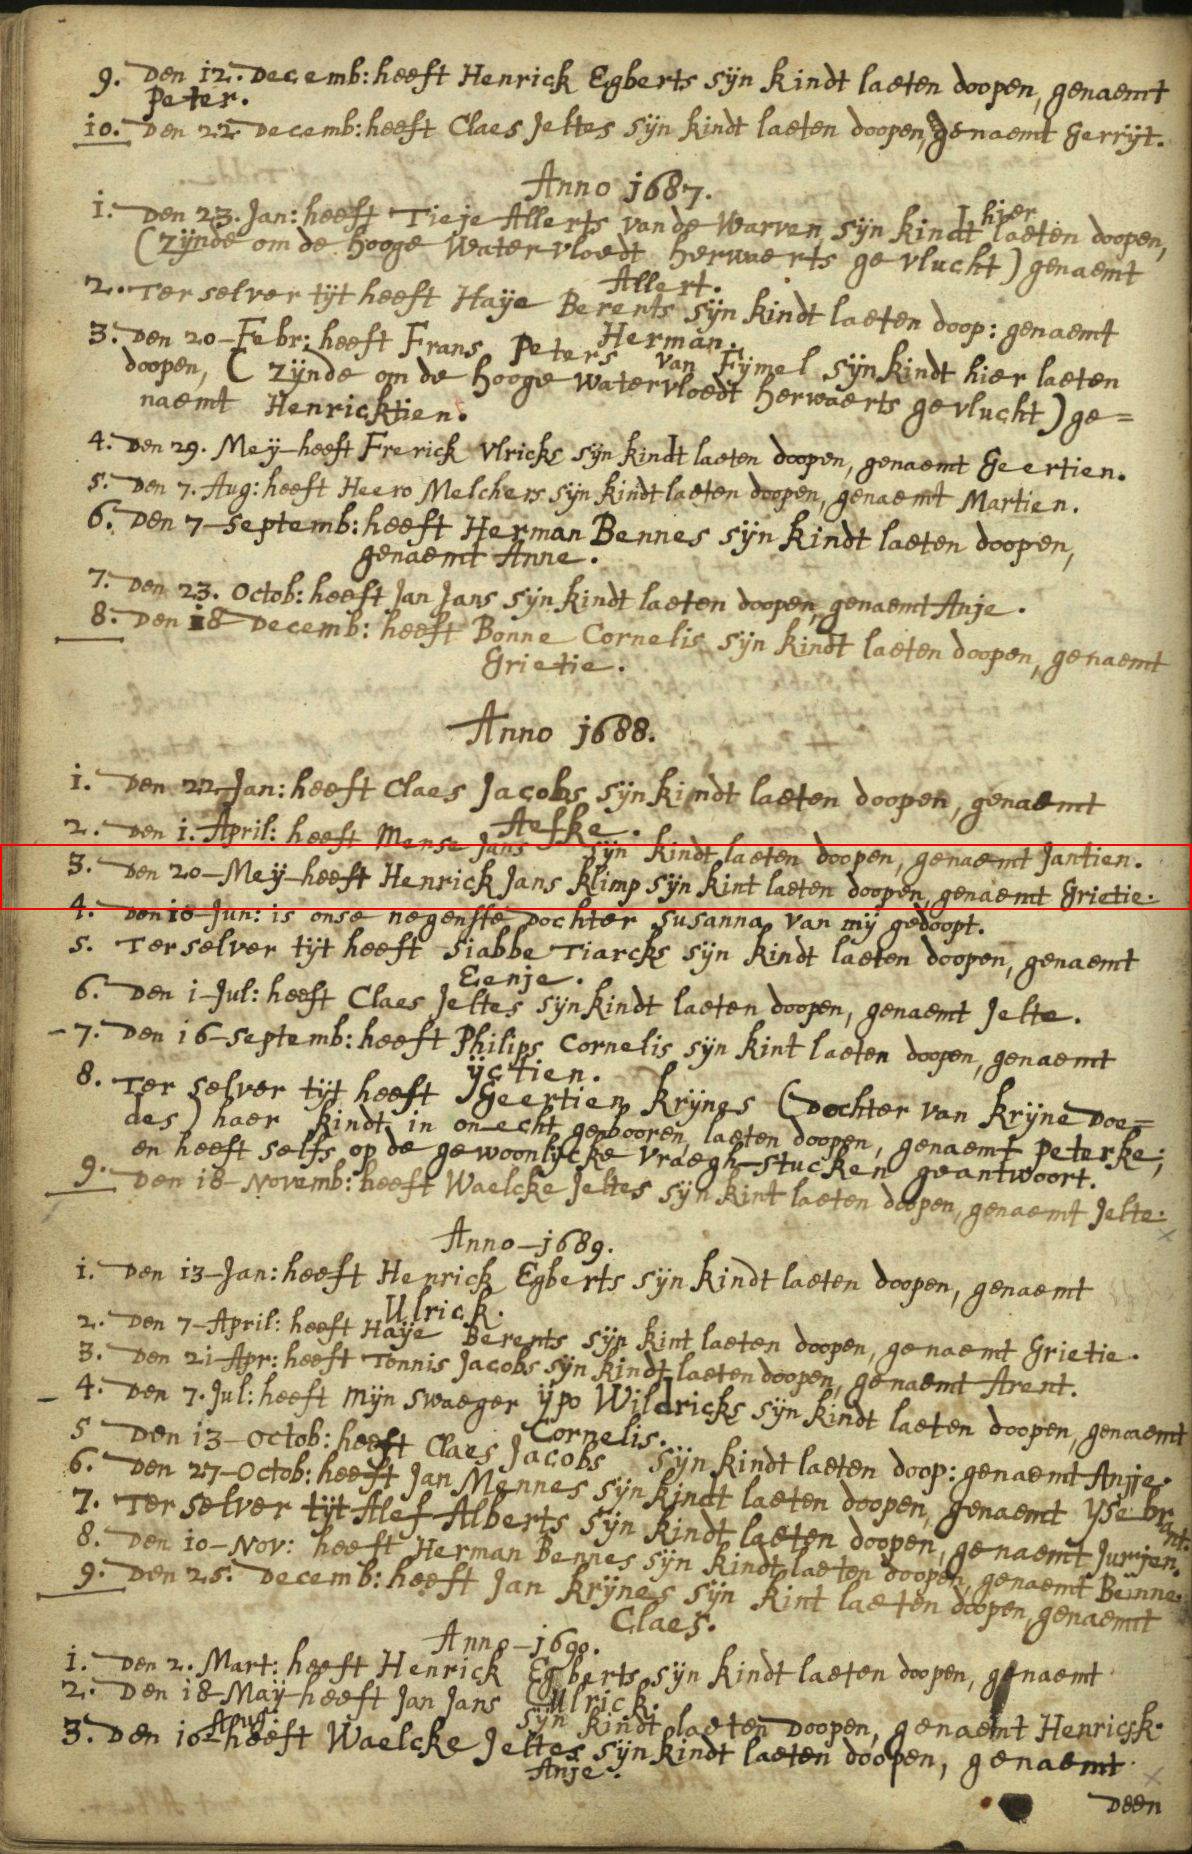 9. Den 12. Decemb: heeft Henrick Egberts sÿn kindt laeten doopen, genaemt
Peter.
10. Den 22 Decemb: heeft Claes Jeltes sÿn kindt laeten doopen, genaemt Gerrÿt.
Anno 1687.
1. Den 23. Jan: heeft Tieje Allerts van de Warven, sÿn kindt hier laeten doopen,
(zÿnde om de hooge Watervloedt herwaerts gevlucht) genaemt
Allert.
2. Ter selver tÿt heeft Haÿe Berents sÿn kindt laeten doop: genaemt
Herman.
3. Den 20-Febr: heeft Frans Peters van Fÿmel sÿn kindt hier laeten
doopen, (zÿnde om de hooge Watervloedt herwaerts gevlucht) ge=
naemt Henricktien.
4. Den 29. Meÿ-heeft Frerick Vlricks sÿn kindt laeten doopen, genaemt Geertien.
5. Den 7. Aug: heeft Heero Melchers sÿn kindt laeten doopen, genaemt Martien.
6. Den 7-Septemb: heeft Herman Bennes sÿn kindt laeten doopen,
genaemt Anne.
7. Den 23. Octob: heeft Jan Jans sÿn kindt laeten doopen, genaemt Anje.
8. Den 18 Decemb: heeft Bonne Cornelis sÿn kindt laeten doopen, genaemt
Grietie.
Anno 1688.
1. Den 22-Jan: heeft Claes Jacobs sÿn kindt laeten doopen, genaemt
Aefke.
2. Den 1. April: heeft Mense Jans sÿn kindt laeten doopen, genaemt Jantien.
3. Den 20-Meÿ-heeft Henrick Jans Klimp sÿn kint laeten doopen, genaemt Grietie.
4. Den 10-Jun: is onse negenste Dochter Susanna van mÿ gedoopt.
5. Ter selver tÿt heeft Siabbe Tiarcks sÿn kindt laeten doopen, genaemt
Eenje.
6. Den 1-Jul: heeft Claes Jeltes sÿn kindt laeten doopen, genaemt Jelte.
7. Den 16-Septemb: heeft Philips Cornelis sÿn kint laeten doopen, genaemt
ÿctien.
8. Ter selver tÿt heeft Geertien Krÿnes (Dochter van Krÿne Doe=
des) haer kindt in onecht gebooren, laeten doopen, genaemt Peterke;
en heeft selfs op de gewoonlÿcke Vraegh-stucken geantwoort.
9. Den 18-Novemb: heeft Waelcke Jeltes sÿn kint laeten doopen, genaemt Jelte.
Anno-1689.
1. Den 13-Jan: heeft Henrick Egberts sÿn kindt laeten doopen, genaemt
Ulrick.
2. Den 7-April: heeft Haÿe Berents sÿn kint laeten doopen, genaemt Grietie.
3. Den 21-Apr: heeft Tonnis Jacobs sÿn kindt laeten doopen, genaemt Arent.
4. Den 7. Jul: heeft mÿn swaeger ÿpo Wildricks sÿn kindt laeten doopen, genaemt
Cornelis.
5 Den 13-Octob: heeft Claes Jacobs sÿn kindt laeten doop: genaemt Anje.
6. Den 27-Octob: heeft Jan Mennes sÿn kindt laeten doopen, genaemt ÿsebrant.
7. Ter selver tÿt Alef Alberts sÿn kindt laeten doopen, genaemt Jurrjen.
8. Den 10-Nov: heeft Herman Bennes sÿn kindt laeten doopen, genaemt Benne.
9. Den 25. Decemb: heeft Jan Krÿnes sÿn kint laeten doopen, genaemt
Claes.
Anno-1690.
1. Den 2. Mart: heeft Henrick Egberts sÿn kindt laeten doopen, genaemt
Ulrick.
2. Den 18-Maÿ-heeft Jan Jans sÿn kindt laeten Doopen, genaemt Henrick.
3. Den 16 Aug: heeft Waelcke Jeltes sÿn kindt laeten doopen, genaemt
Anje.
Deen